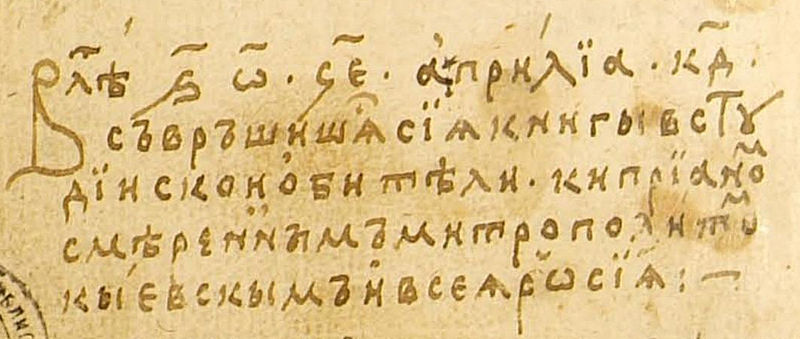 В лѣⷮ ҂ѕ҃ ѡ҃ · ҁ҃е · а҆прилїа · кд҃ ·
съвръшишѧⷭ сїѧ книгы в стꙋ
дїискои ѻбитѣли · кипрїаноⷨ
смѣреннымъ митрополитоⷨ
кы́евскымъ и҆ всеѧ рѡсїѧ : —